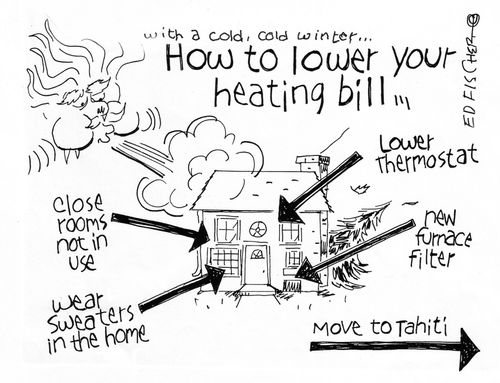 with a cold, cold winter...
How to lower your
heating bill...
© ED FISCHER
Lower
Thermostat
close
rooms
not in
use
new
furnace
filter
wear
sweaters
in the home
MOVE TO Tahiti